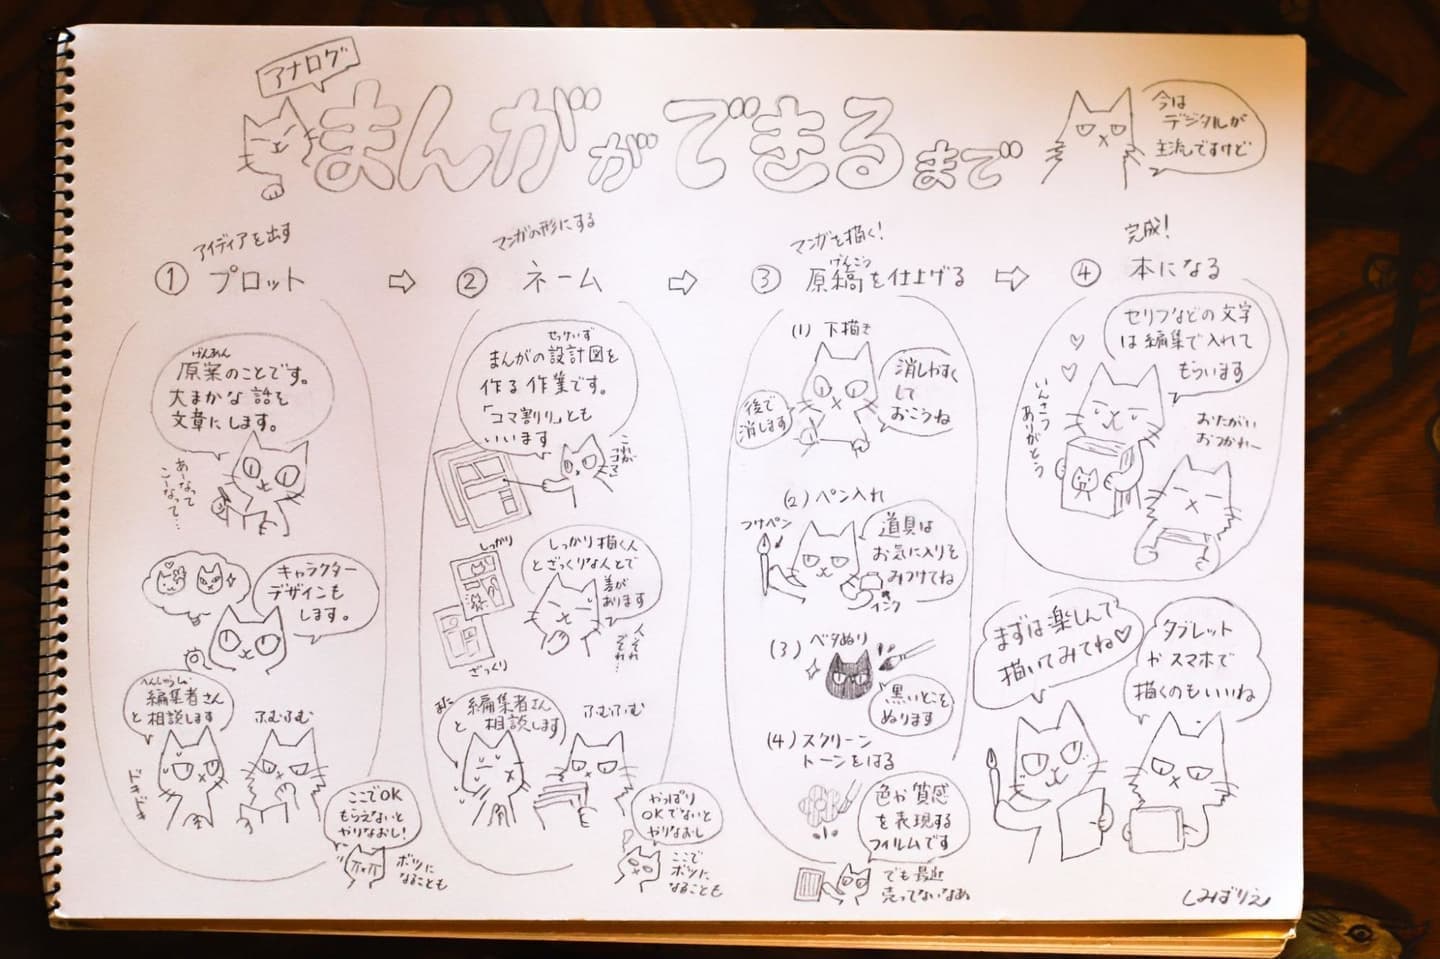 アナログ
まんがができるまで
今は
デジタルが
主流ですけど
アイディアを出す
① プロット
⇨
げんあん
原案のことです。
大まかな話を
文章にします。
あーなって
こーなって…
キャラクター
デザインも
します。
へんしゅうしゃ
編集者さん
と相談します
ふむふむ
ドキドキ
ここでOK
もらえないと
やりなおし!
ボツに
なることも
マンガの形にする
② ネーム
⇨
せっけいず
まんがの設計図を
作る作業です。
「コマ割り」とも
いいます
これが
コマ
しっかり
ざっくり
しっかり描く人
とざっくりな人とで
差が
あります
人それ
ぞれ…
また
編集者さん
と相談します
ふむふむ
やっぱり
OKでないと
やりなおし
ここで
ボツに
なることも
マンガを描く!
げんこう
③ 原稿を仕上げる
⇨
(1) 下描き
消しやすく
して
おこうね
後で
消します
(2) ペン入れ
つけペン
道具は
お気に入りを
みつけてね
インク
(3) ベタぬり
黒いとこを
ぬります
(4) スクリーン
トーンをはる
色や質感
を表現する
フィルムです
でも最近
売ってないなぁ
完成!
④ 本になる
セリフなどの文字
は編集で入れて
もらいます
いんさつ
ありがとう
おたがい
おつかれー
まずは楽しんで
描いてみてね♡
タブレット
やスマホで
描くのもいいね
しみばりえ